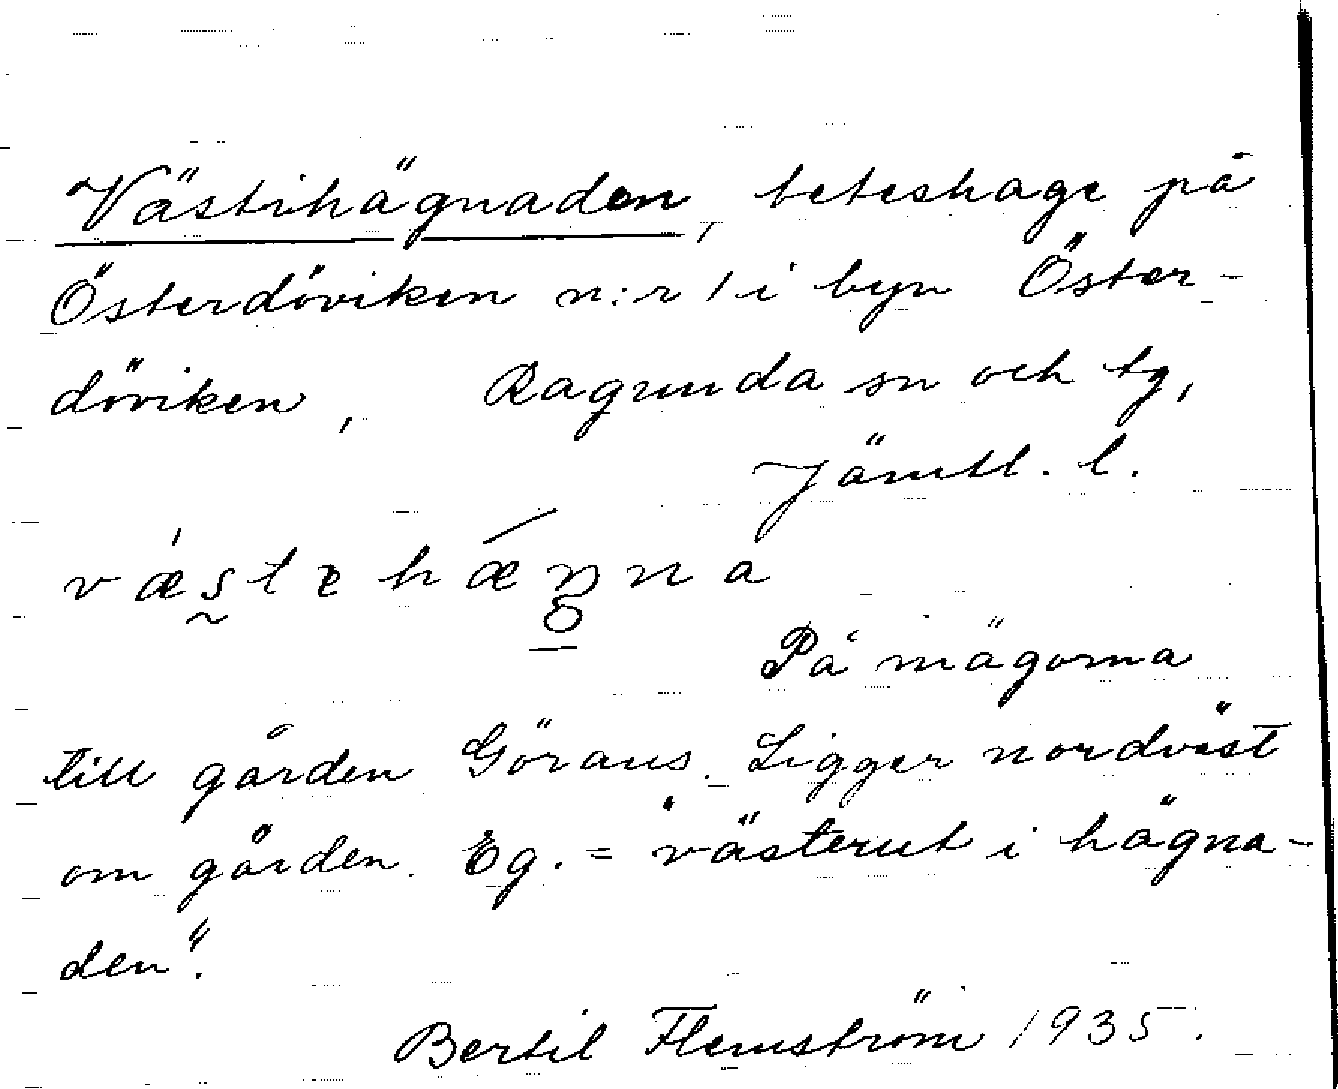 Västihägnaden, beteshage på
Österdöviken n:r 1 i byn Öster-
döviken, Ragunda sn och tg,
Jämtl. l.
væ´stehæ´ŋna
På mägorna
till gården Görans. Ligger nordväst
om gården. Eg. = "västerut i hägna-
den".
Bertil Flemström 1935.